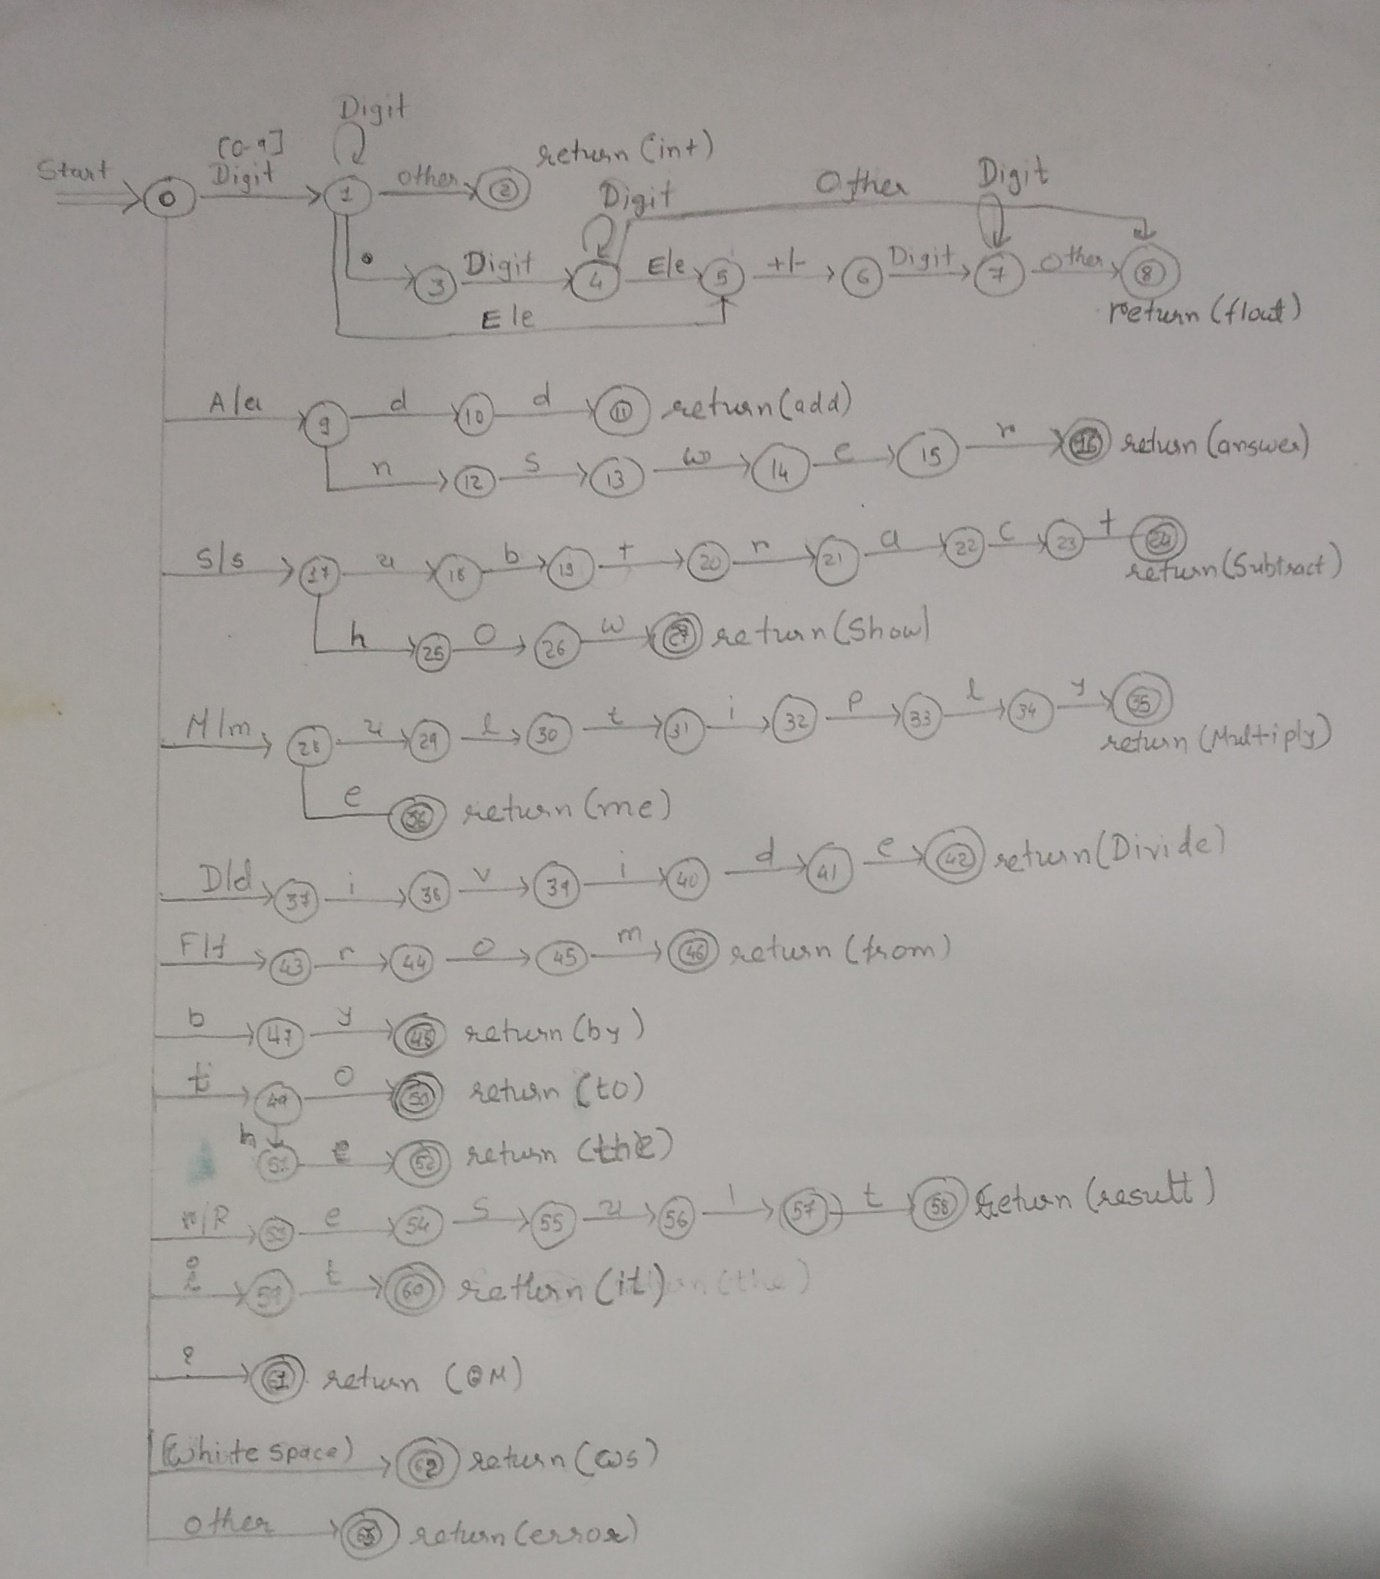 Digit
[0-9]
Start Digit 0 1 other 2 return (int)
Digit Other Digit
. 3 Digit 4 E/e 5 +/- 6 Digit 7 Other 8
E/e return (float)
A/a 9 d 10 d 11 return (add)
n 12 s 13 w 14 e 15 r 16 return (answer)
S/s 17 u 18 b 19 t 20 r 21 a 22 c 23 t 24
return (Subtract)
h 25 o 26 w 27 return (Show)
M/m 28 u 29 l 30 t 31 i 32 p 33 l 34 y 35
return (Multiply)
e 36 return (me)
D/d 37 i 38 v 39 i 40 d 41 e 42 return (Divide)
F/f 43 r 44 o 45 m 46 return (from)
b 47 y 48 return (by)
t 49 o 50 return (to)
h 51 e 52 return (the)
r/R 53 e 54 s 55 u 56 l 57 t 58 return (result)
i 59 t 60 return (it)
? 61 return (QM)
(white space) 62 return (ws)
other 63 return (error)